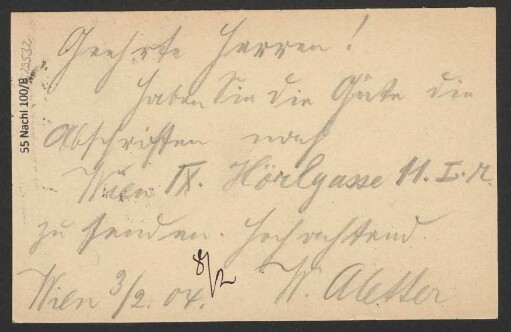 Geehrte Herren!
Haben Sie die Güte die
Abschriften nach
Wien IX. Hörlgasse 11. I. r.
zu senden. Hochachtend.
Wien 3/2. 04. 8/2 W. Aletter
55 Nachl 100/B 25532